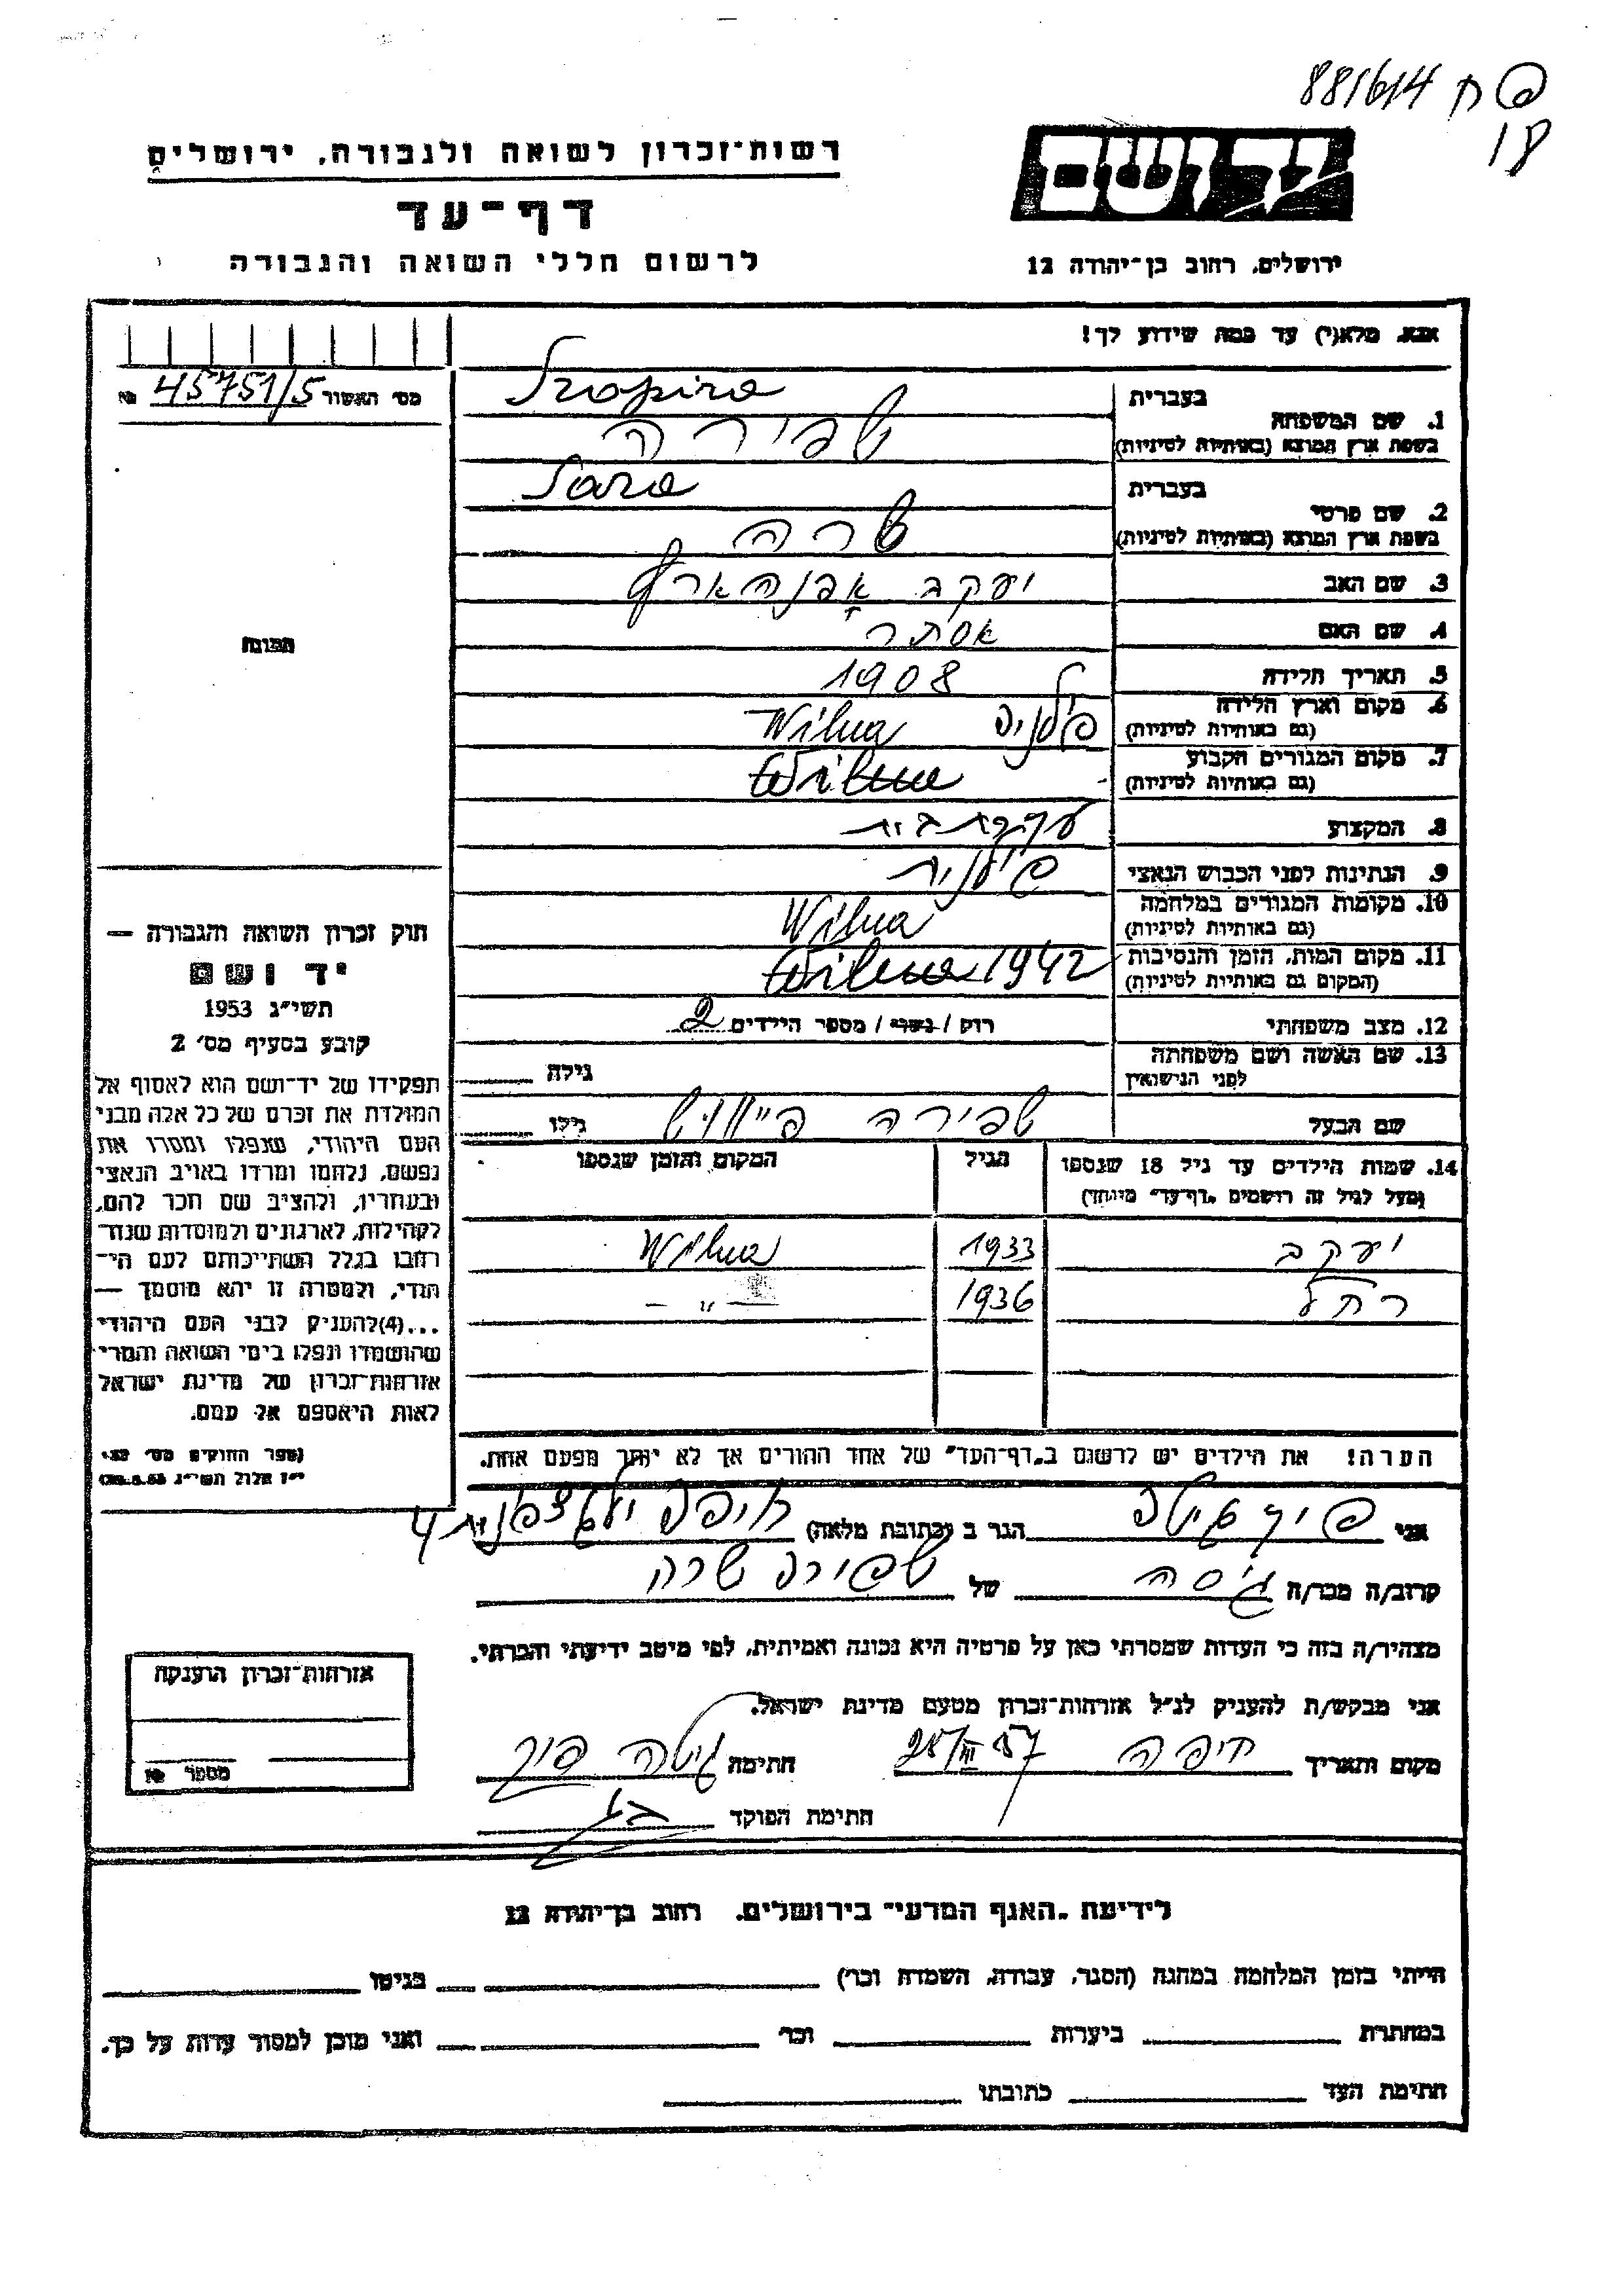 881614 ח פ
18
רשות־זכרון לשואה ולגבורה, ירושלים
יד ושם
דף־עד
לרשום חללי השואה והגבורה
ירושלים, רחוב בן־יהודה 12
אנא, מלא(י) עד כמה שידוע לך!
מס׳ האשור № 45751/5
בעברית Szapira
1. שם המשפחה
בשפת ארץ המוצא (באותיות לטיניות) שפירה
בעברית Sara
2. שם פרטי
בשפת ארץ המוצא (באותיות לטיניות) שרה
3. שם האב יעקב
4. שם האם אסתר
5. תאריך הלידה 1908
6. מקום וארץ הלידה Wilna
(גם באותיות לטיניות)
7. מקום המגורים הקבוע Wilna
(גם באותיות לטיניות)
8. המקצוע עקרת בית
9. הנתינות לפני הכבוש הנאצי
10. מקומות המגורים במלחמה Wilna
(גם באותיות לטיניות)
11. מקום המות, הזמן והנסיבות Wilna 1942
(המקום גם באותיות לטיניות)
12. מצב משפחתי רווק / נשוי / מספר הילדים 2
13. שם האשה ושם משפחתה גילה
לפני הנישואין
שם הבעל שפירה גילו
14. שמות הילדים עד גיל 18 שנספו הגיל המקום והזמן שנספו
(מעל לגיל זה רושמים „דף־עד״ מיוחד)
יעקב 1933 Wilna
רחל 1936 — „ —
התמונה
חוק זכרון השואה והגבורה —
יד ושם
תשי״ג 1953
קובע בסעיף מס׳ 2
תפקידו של יד־ושם הוא לאסוף אל
המולדת את זכרם של כל אלה מבני
העם היהודי, שנפלו ומסרו את
נפשם, נלחמו ומרדו באויב הנאצי
ובעוזריו, ולהציב שם וזכר להם,
לקהילות, לארגונים ולמוסדות שנח־
רבו בגלל השתייכותם לעם היה־
ודי, ולמטרה זו יהא מוסמך —
...(4)להעניק לבני העם היהודי
שהושמדו ונפלו בימי השואה והמרי
אזרחות־זכרון של מדינת ישראל
לאות היאספם אל עמם.
(ספר החוקים מס׳ 132,
י״ז אלול תשי״ג 28.8.53)
הערה! את הילדים יש לרשום ב„דף־העד״ של אחד ההורים אך לא יותר מפעם אחת.
אני הגר ב (כתובת מלאה) חיפה
קרוב/ה מכר/ה גיסה של שפירה שרה
מצהיר/ה בזה כי העדות שמסרתי כאן על פרטיה היא נכונה ואמיתית, לפי מיטב ידיעתי והכרתי.
אני מבקש/ת להעניק לנ״ל אזרחות־זכרון מטעם מדינת ישראל.
מקום ותאריך חיפה חתימה
חתימת הפוקד
אזרחות־זכרון הוענקה
מספר №
לידיעת „האגף המדעי״ בירושלים, רחוב בן־יהודה 12
הייתי בזמן המלחמה במחנה (הסגר, עבודה, השמדה וכו׳) בגיטו
במחתרת ביערות וכו׳ ואני מוכן למסור עדות על כך.
חתימת העד כתובתו